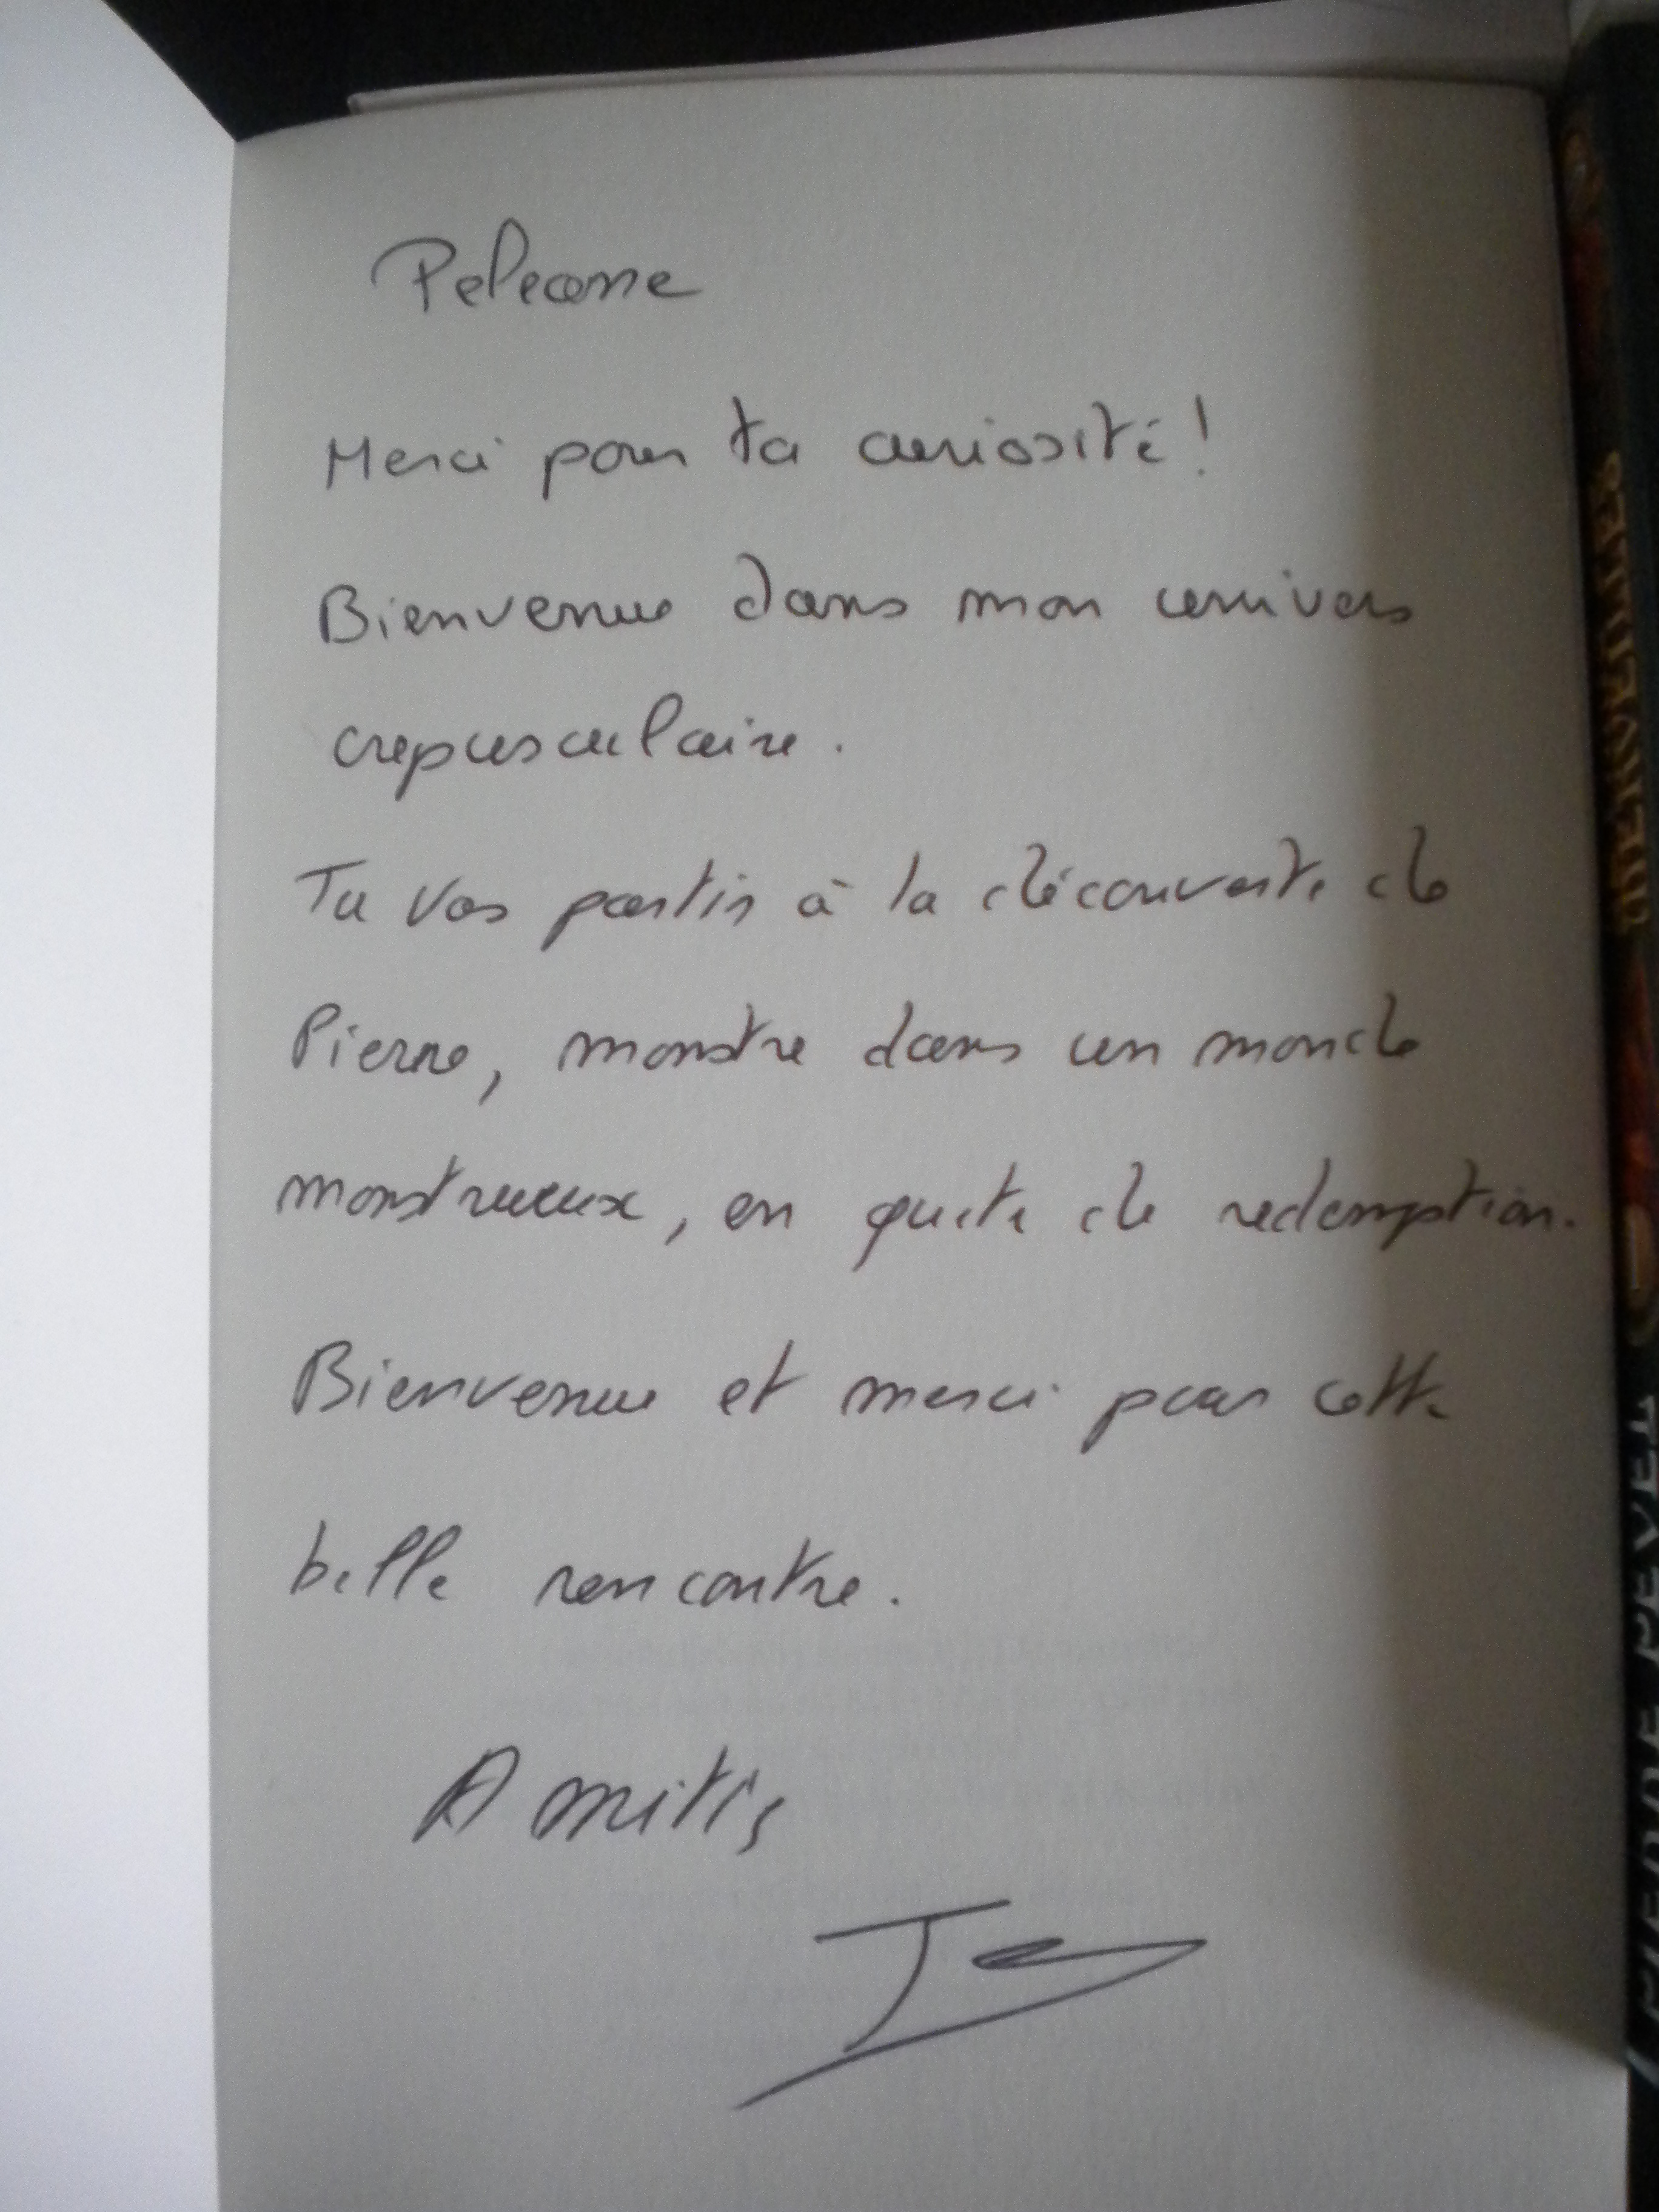 Merci pour ta curiosité !
Bienvenue dans mon univers
crepusculaire.
Tu vas partir à la découverte de
Pierre, monstre dans un monde
monstrueux, en quete de redemption.
Bienvenue et merci pour cette
belle rencontre.
Amitiés
PIERRE PEVEL
MERVEILLES